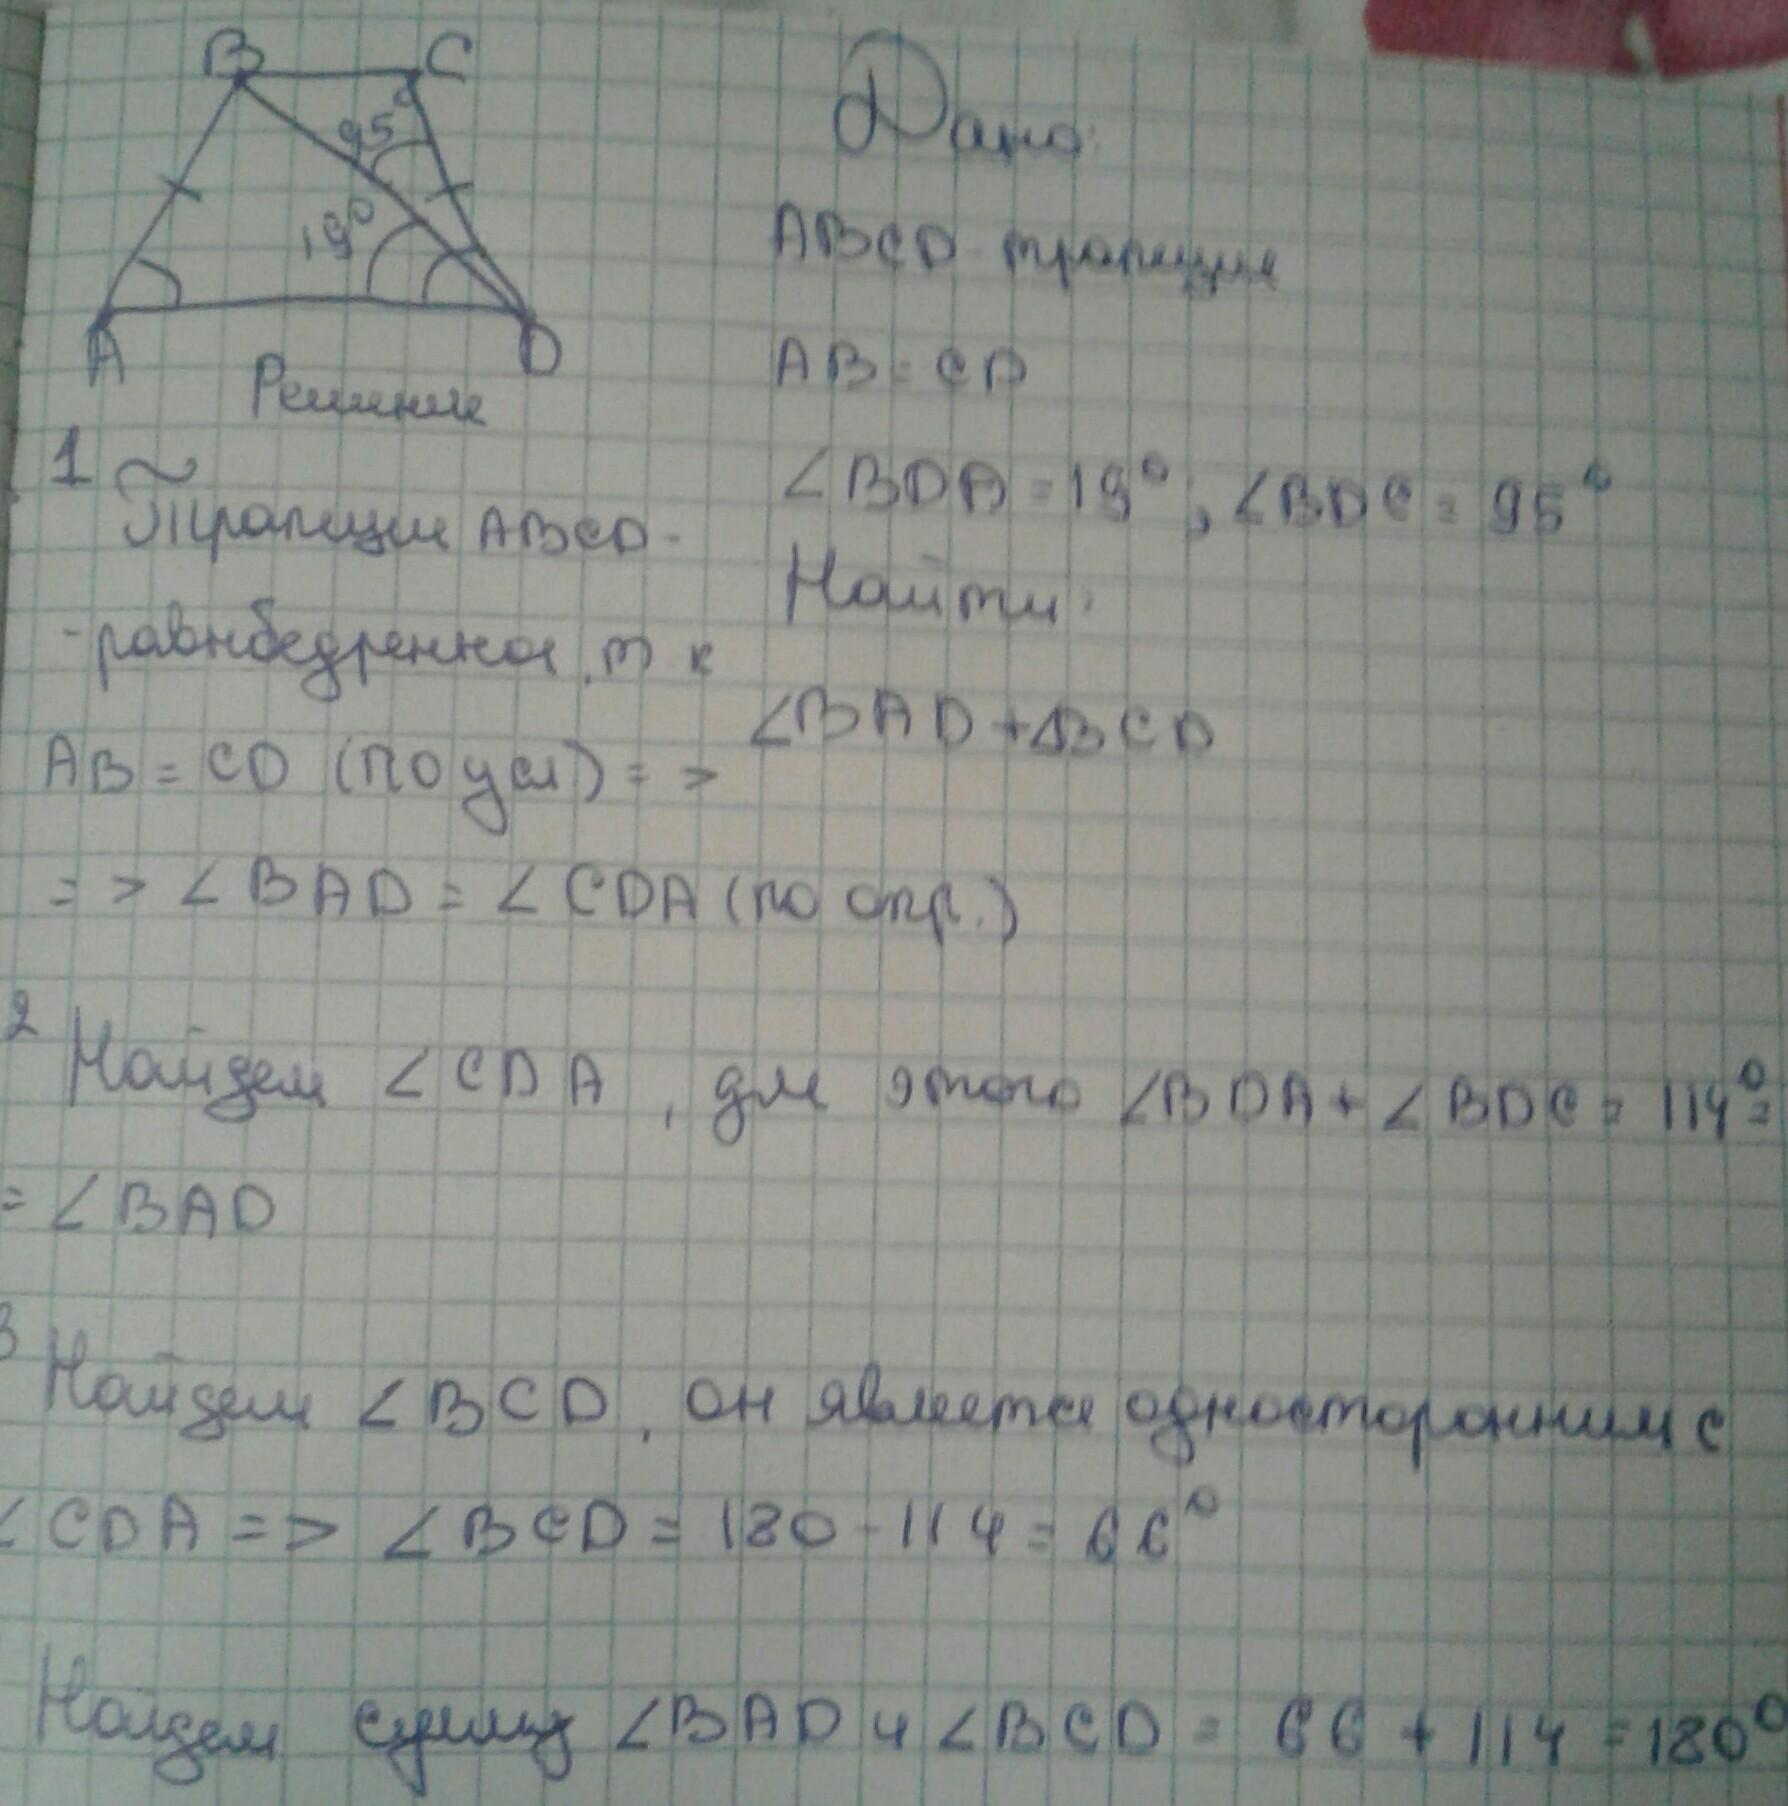 B C
95°
19°
A D
Дано:
ABCD трапеция
AB = CD
∠BDA = 19°, ∠BDC = 95°
Найти:
∠BAD + ∠BCD
Решение
1 Трапеция ABCD -
- равнбедренная, т к
AB = CD (по усл) = >
= > ∠BAD = ∠CDA (по опр.)
2 Найдем ∠CDA, для этого ∠BDA + ∠BDC = 114° =
= ∠BAD
3 Найдем ∠BCD, он является односторонним с
∠CDA = > ∠BCD = 180 - 114 = 66°
Найдем сумму ∠BAD и ∠BCD = 66 + 114 = 180°